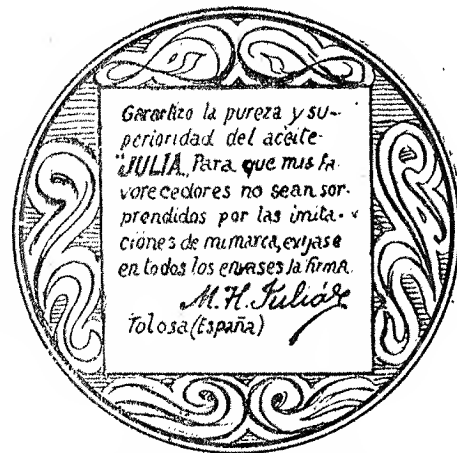 Garantizo la pureza y su-
perioridad del aceite
"JULIA„ Para que mis fa
vorecedores no sean sor-
prendidos por las imita-
ciones de mi marca, exijase
en todos los envases la firma
M. H. Julián
Tolosa (España)